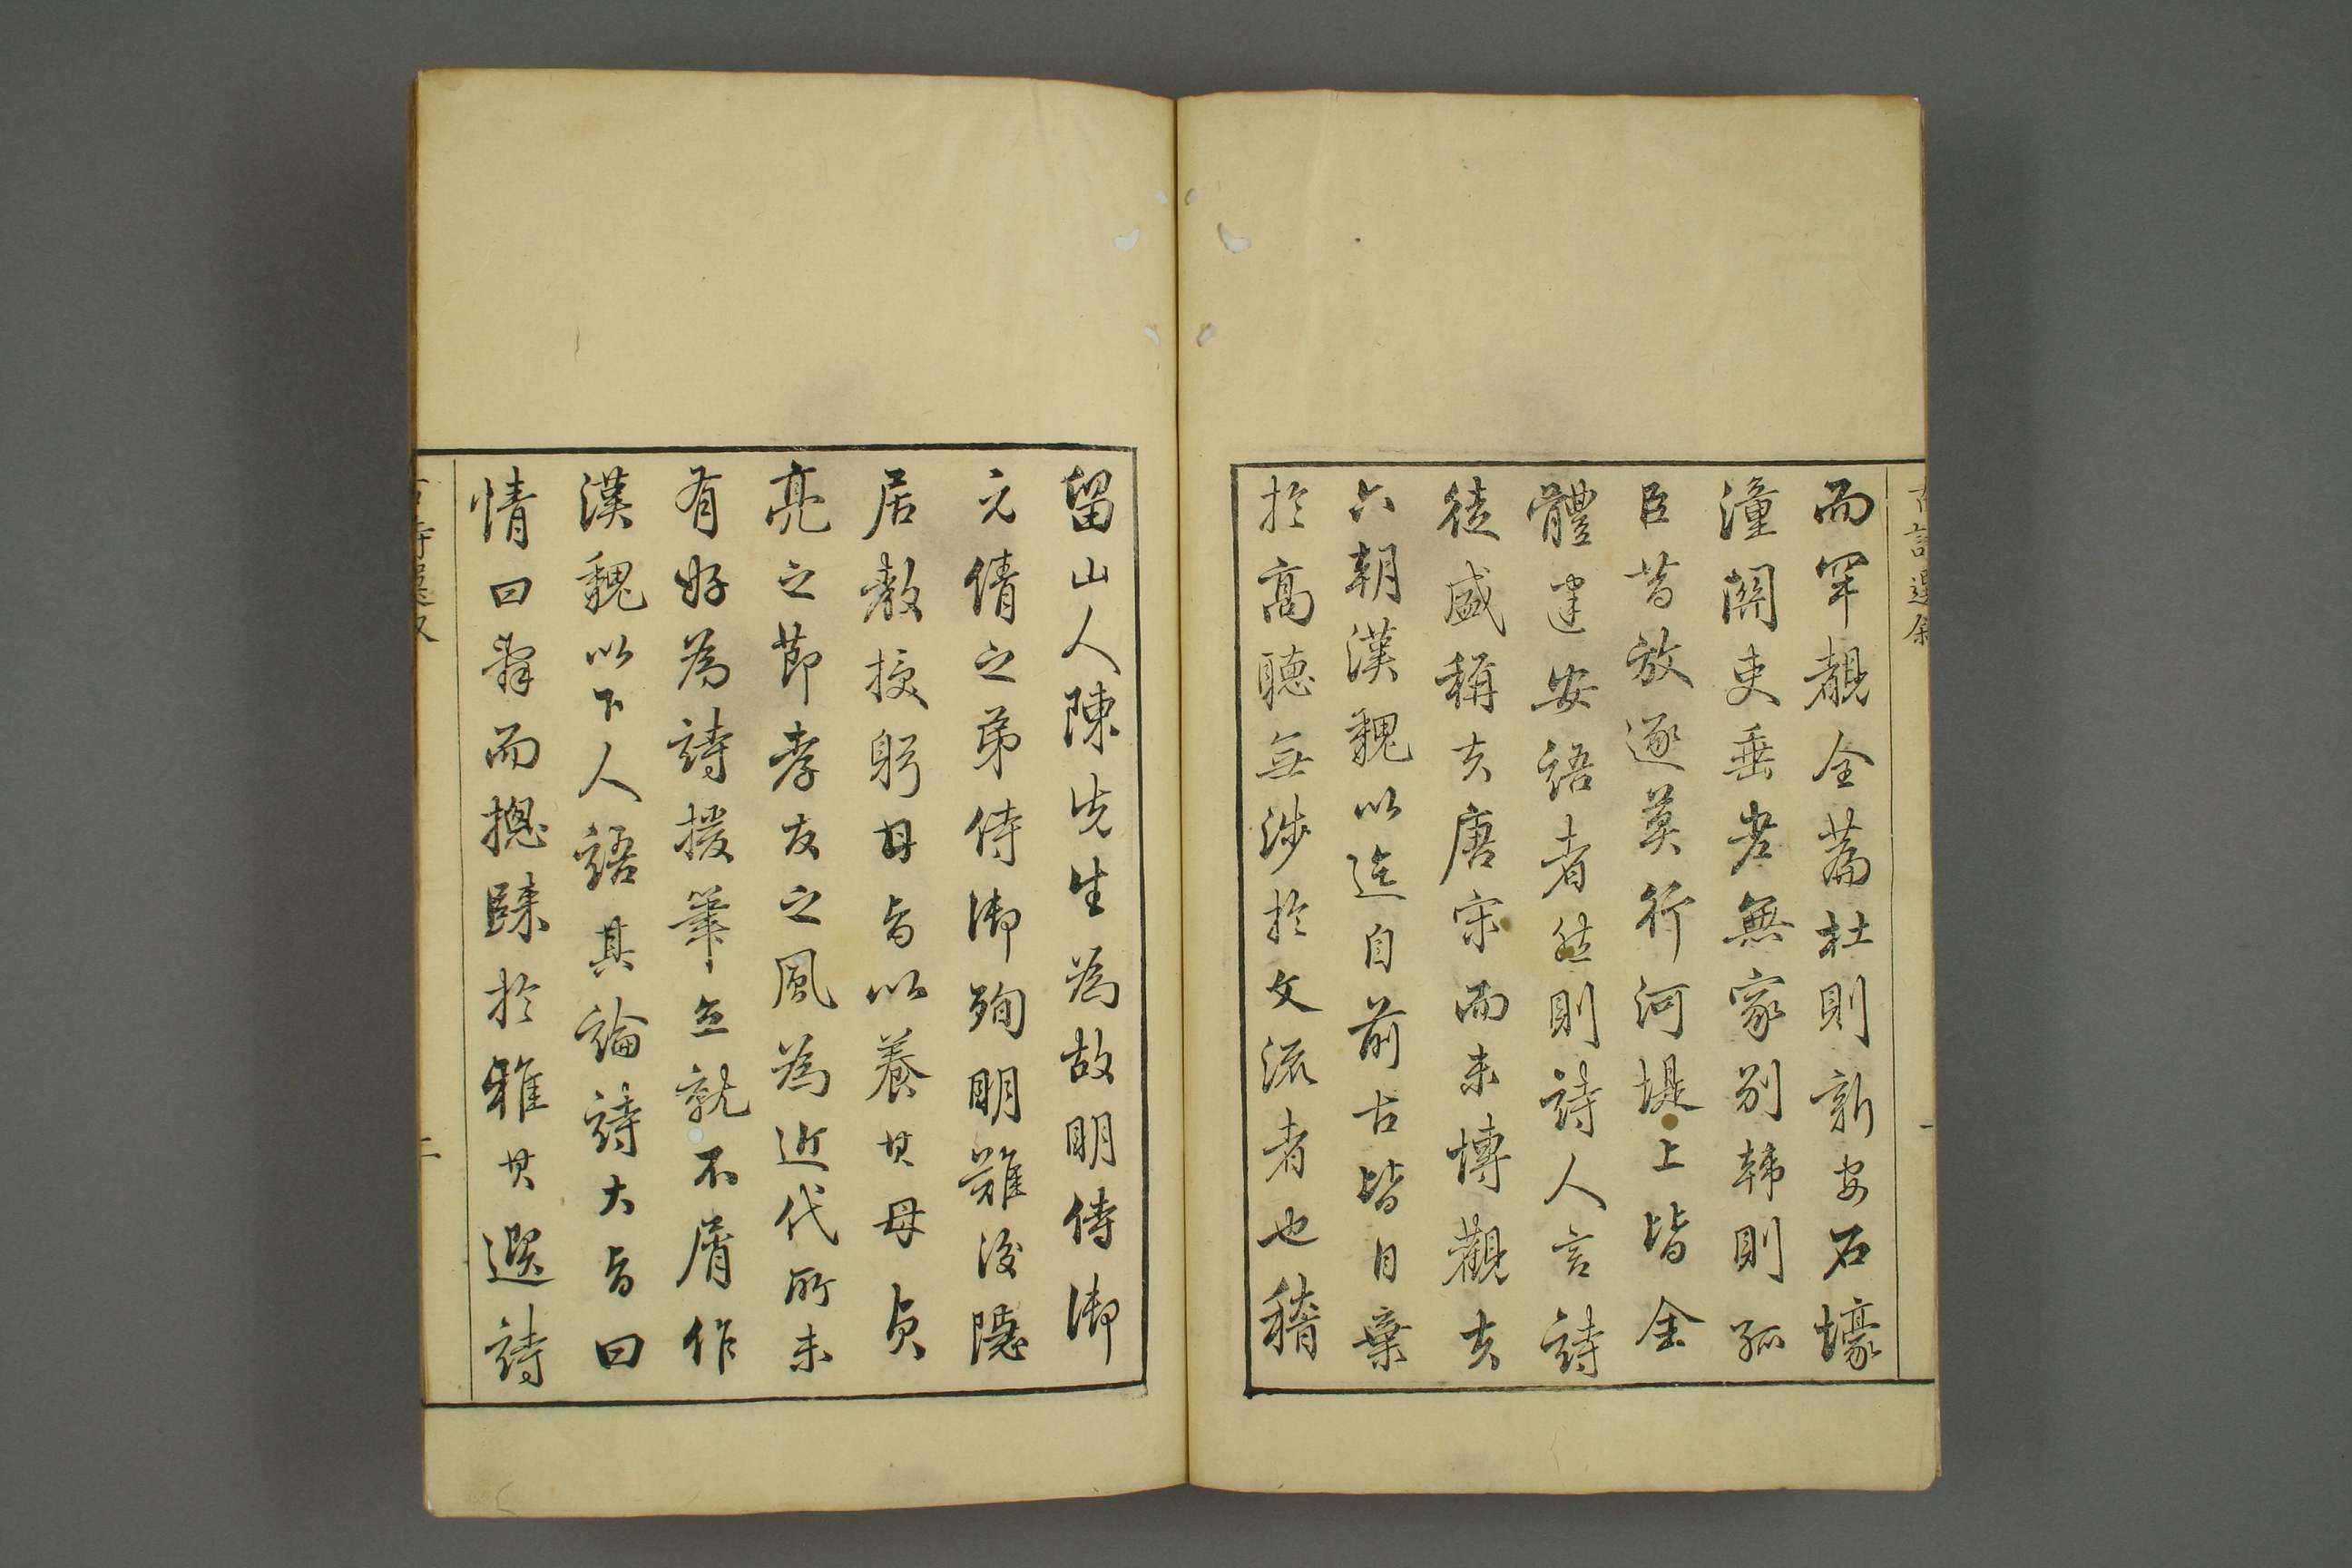 古詩選叙
一
而罕覩全篇杜則新安石壕
潼關吏垂老無家別韓則孤
臣昔放逐莫行河堤上皆全
體建安語者然則詩人言詩
徒盛稱夫唐宋而未博觀夫
六朝漢魏以迄自前古皆自棄
於高聽無涉於文流者也稽
留山人陳先生為故明侍御
元倩之弟侍御殉明難後隱
居教授躬甘旨以養其母貞
亮之節孝友之風為近代所未
有好為詩援筆立就不屑作
漢魏以下人語其論詩大旨曰
情曰辭而揔歸於雅其選詩
古詩選叙
二